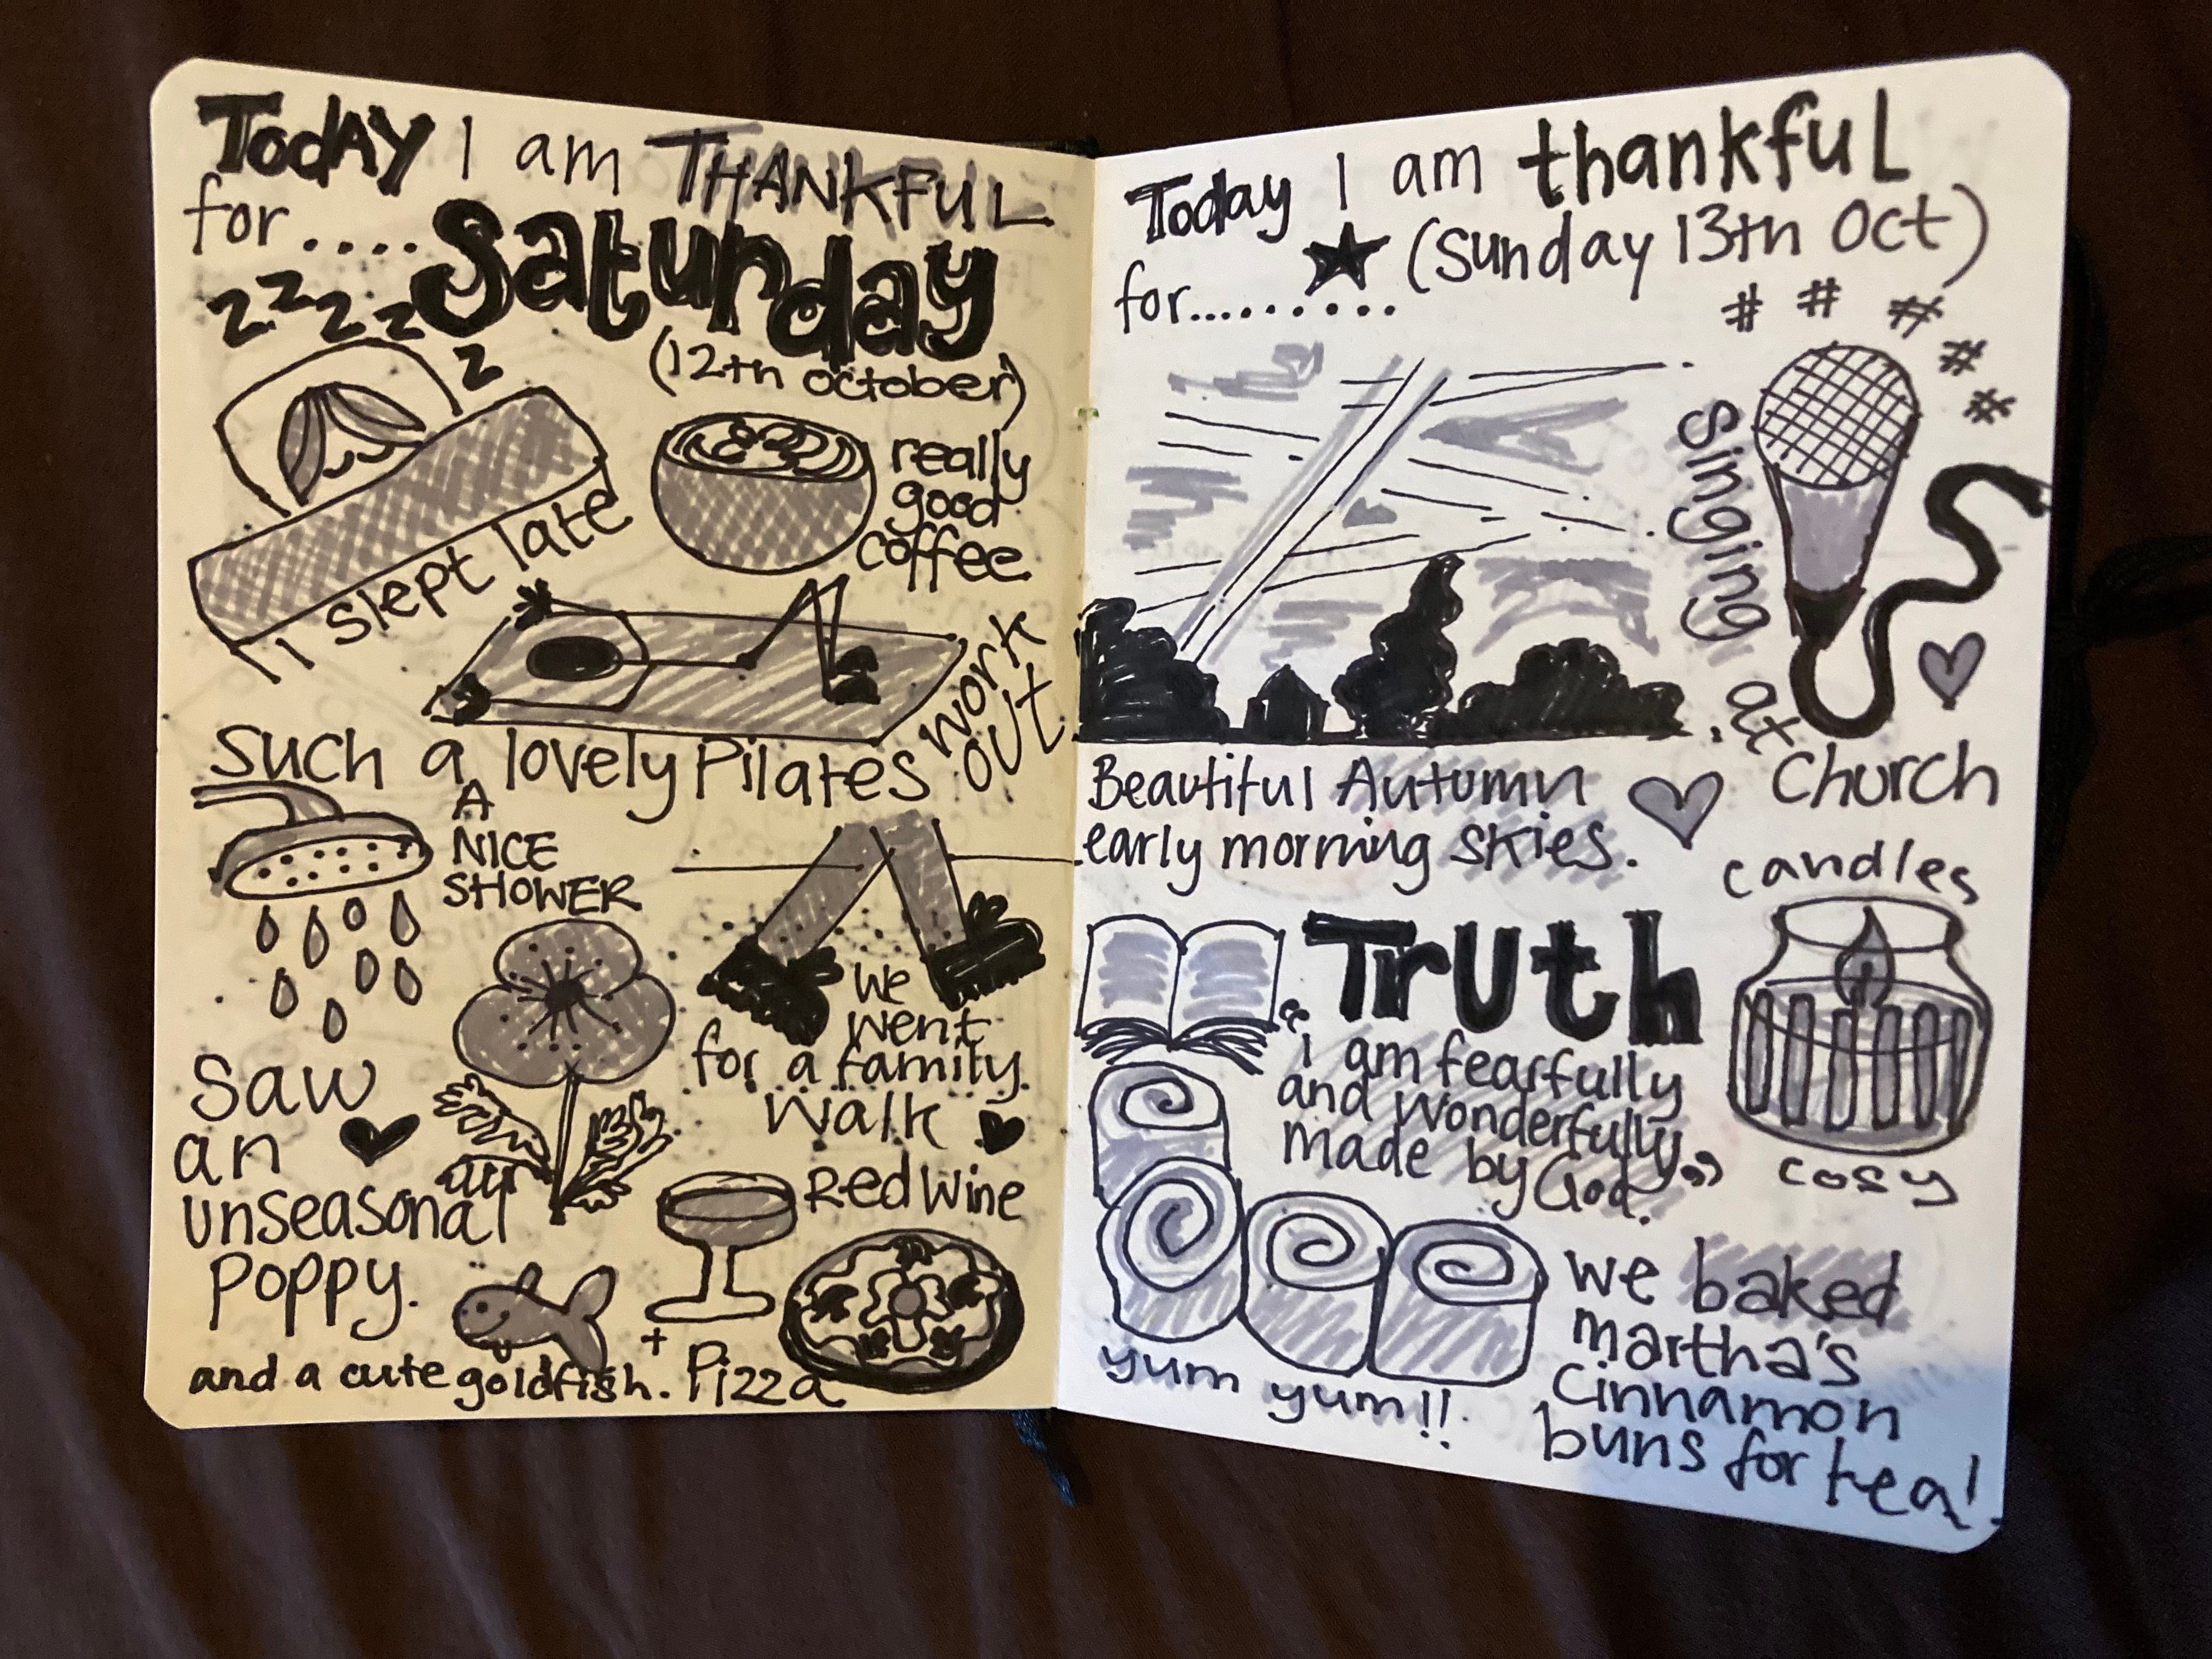 Today I am THANKFUL
for .... Saturday
(12th october)
z z z z z
I slept late
really
good
coffee
such a lovely Pilates work
out
A
NICE
SHOWER
we
went
for a family
walk
saw
an
unseasonal
poppy.
Red wine
+ Pizza
and a cute goldfish.
Today I am thankful
for......... (Sunday 13th Oct)
# # # # #
singing at
church
Beautiful Autumn
early morning skies.
candles
cosy
Truth
"i am fearfully
and wonderfully
made by God."
we baked
martha's
cinnamon
buns for tea!
yum yum!!